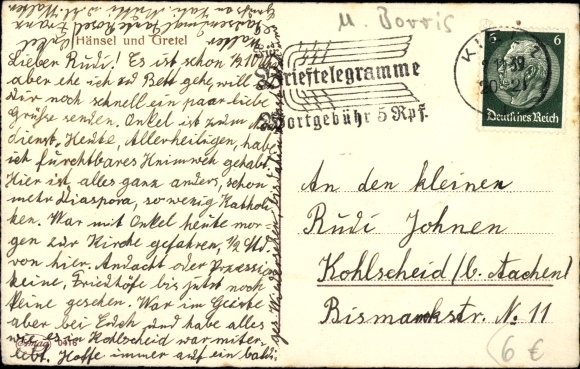 U. Borris
Onkel
Walter
Hänsel und Gretel
Lieber Rudi! Es ist schon ½10 U
aber ehe ich zu Bett gehe, will
Dir noch schnell ein paar liebe
Grüße senden. Onkel ist zum
dienst. Heute, Allerheiligen, hab
ich furchtbares Heimweh gehabt.
Hier ist alles ganz anders, schon
mehr Diaspora, so wenig Katholi
ken. War mit Onkel heute mor
gen zur Kirche gefahren, ½ Std.
von hier. Andacht oder Prozess
keine, Friedhöfe bis jetzt noch
keine gesehen. War im Geiste
aber bei Euch und habe alles
wie es in Kohlscheid war miter-
lebt. Hoffe immer auf ein baldi-
ges Wiedersehen,
Amag
0416
Brieftelegramme
Wortgebühr 5 Rpf.
KIEL 1
11.39
20-21
6 6
Deutsches Reich
An den kleinen
Rudi Johnen
Kohlscheid/b. Aachen
Bismarckstr. No. 11
6 €